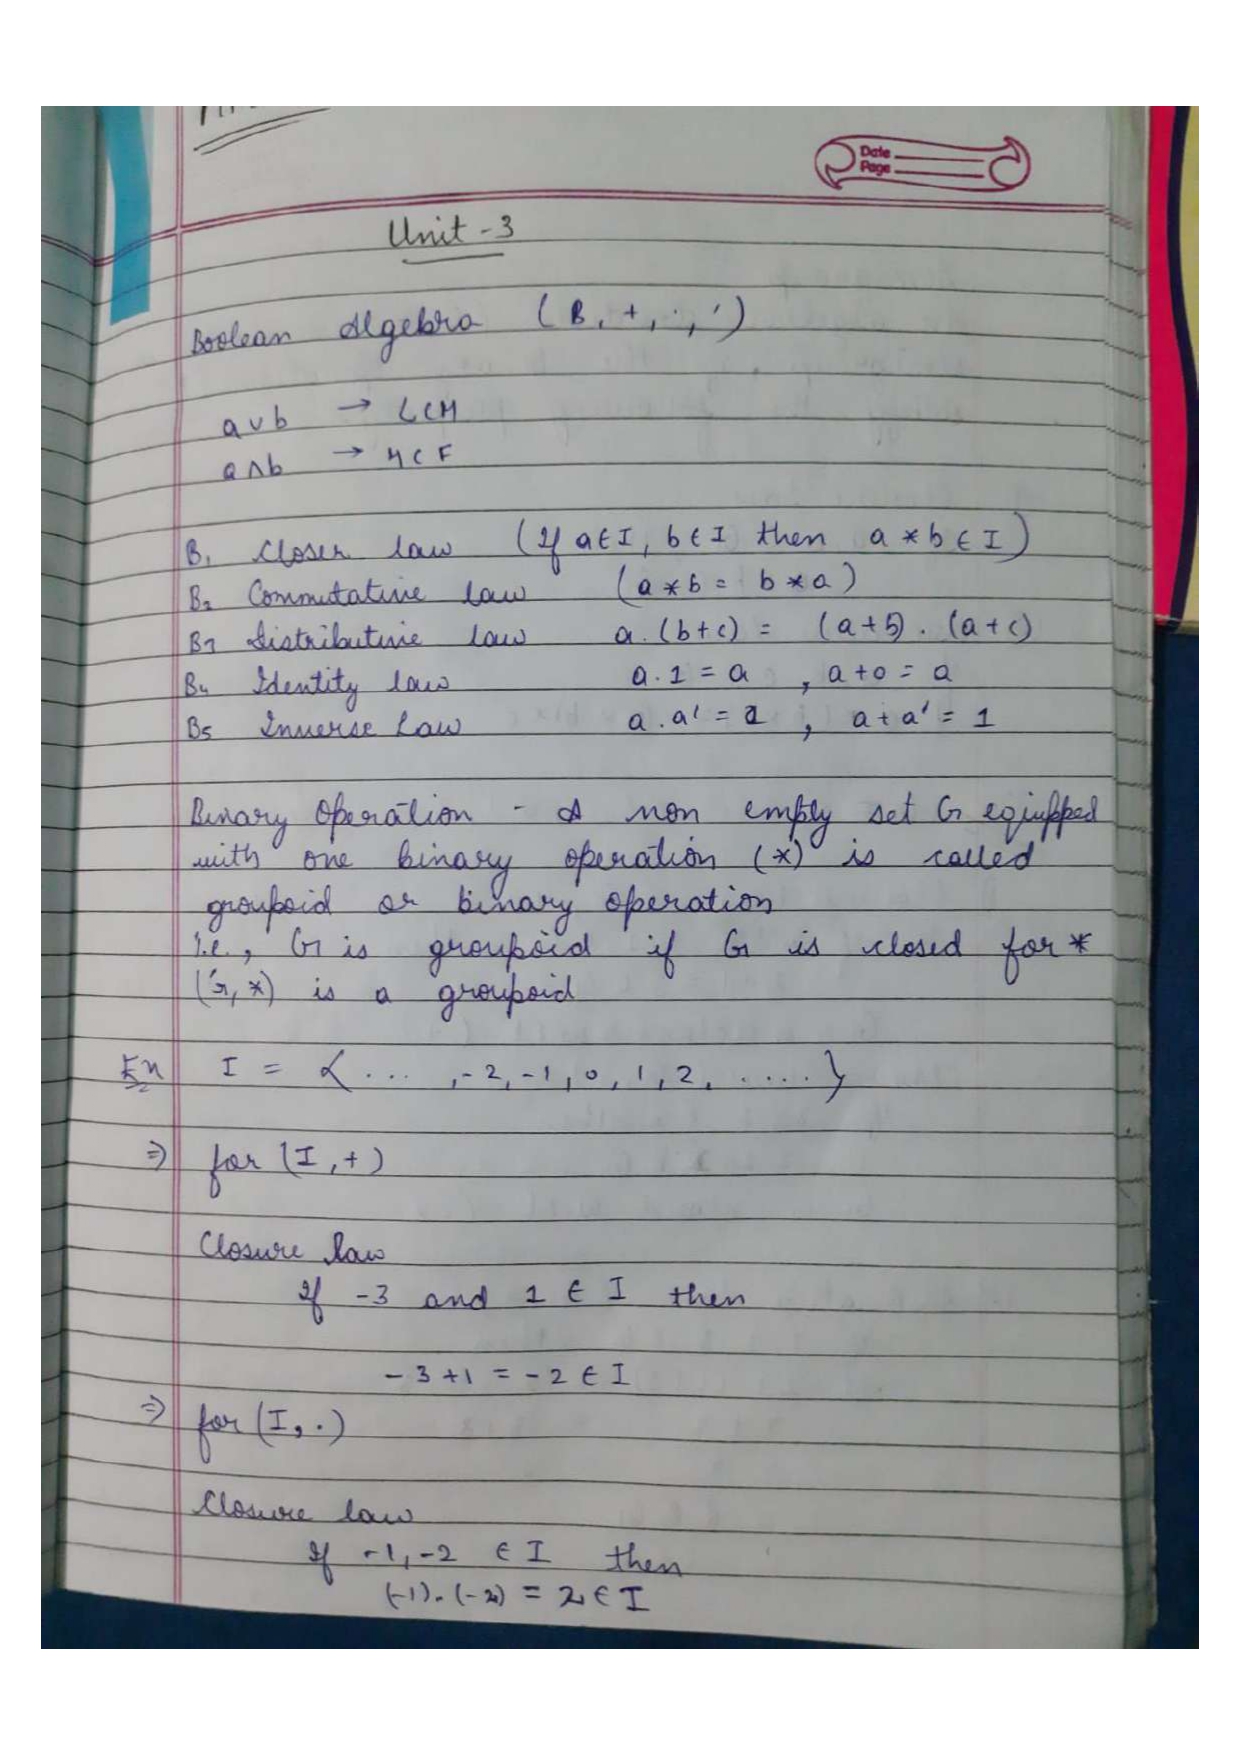 Date
Page
Unit - 3
Boolean Algebra (B, +, ·, ')
a ∨ b → LCM
a ∧ b → HCF
B₁ Closer law (If a ∈ I, b ∈ I then a * b ∈ I)
B₂ Commutative law (a * b = b * a)
B₃ Distributive law a . (b + c) = (a + b) . (a + c)
B₄ Identity law a . 1 = a , a + 0 = a
B₅ Inverse Law a . a' = , a + a' = 1
Binary Operation - A non empty set G equipped
with one binary operation (*) is called
groupoid or binary operation
i.e., G is groupoid if G is closed for *
(G, *) is a groupoid
Ex I = { ... , -2, -1, 0, 1, 2, .... }
⇒ for (I, +)
Closure law
If -3 and 1 ∈ I then
-3 + 1 = -2 ∈ I
⇒ for (I, .)
Closure law
If -1, -2 ∈ I then
(-1) . (-2) = 2 ∈ I